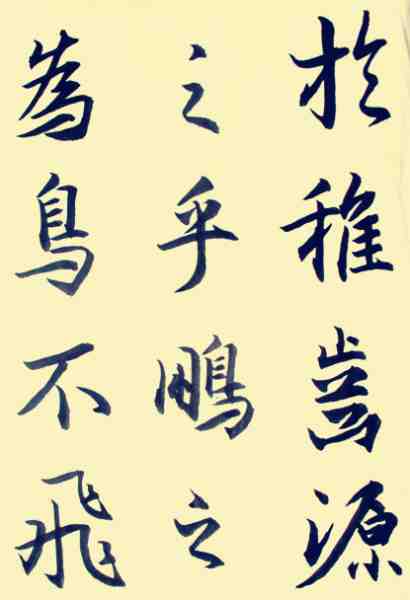 於稚齒源
之乎鵬之
為鳥不飛